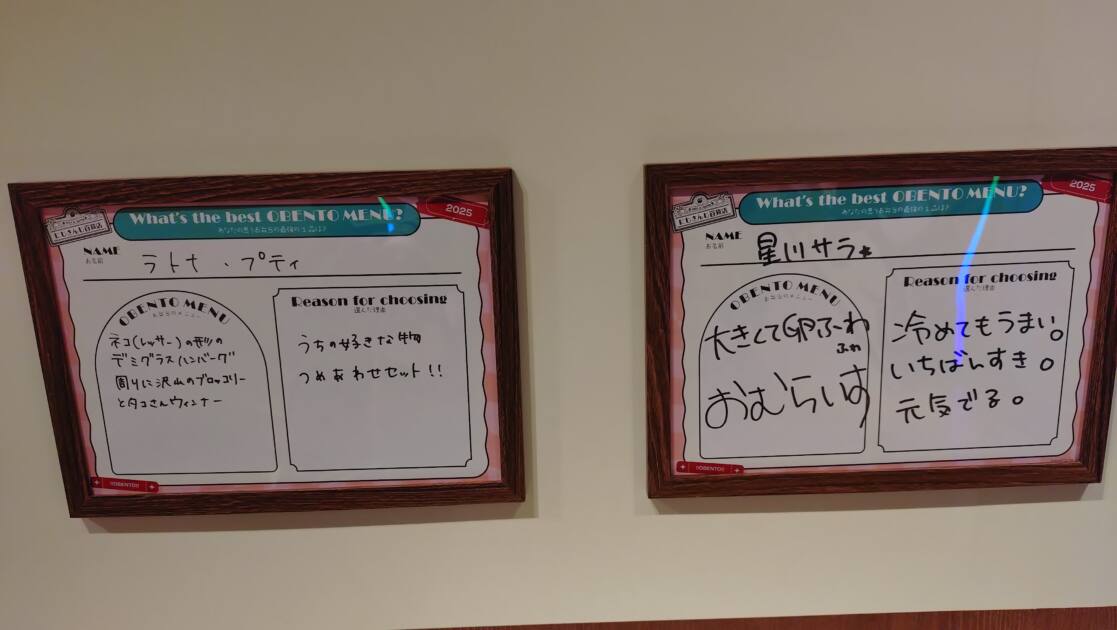 にじさんじ百貨店
What's the best OBENTO MENU?
あなたの思うお弁当の最強の1品は?
2025
NAME
お名前
ラトナ・プティ
OBENTO MENU
お弁当のメニュー
ネコ(レッサー)の形の
デミグラスハンバーグ
周りに沢山のブロッコリー
とタコさんウィンナー
Reason for choosing
選んだ理由
うちの好きな物
つめあわせセット!!
!!OBENTO!!
にじさんじ百貨店
What's the best OBENTO MENU?
あなたの思うお弁当の最強の1品は?
2025
NAME
お名前
星川サラ★
OBENTO MENU
お弁当のメニュー
大きくて卵ふわ
ふわ
おむらいす
Reason for choosing
選んだ理由
冷めてもうまい。
いちばんすき。
元気でる。
!!OBENTO!!